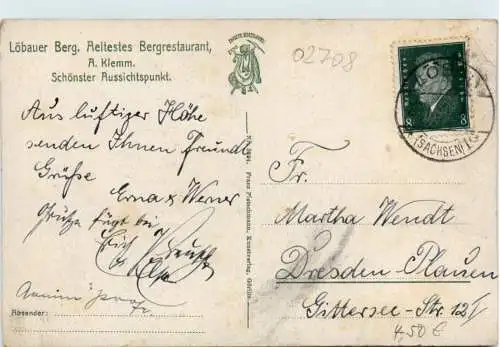 Löbauer Berg. Aeltestes Bergrestaurant,
A. Klemm.
Schönster Aussichtspunkt.
02708
8 8
(SACHSEN)
Aus luftiger Höhe
senden Ihnen freundl
Grüße
Erna & Werner
fügt bei
Absender:
Franz Fleischmann, Kunstverlag, Görlitz.
Fr.
Martha Wendt
Dresden Plauen
Gittersee-Str. 12
4,50 €